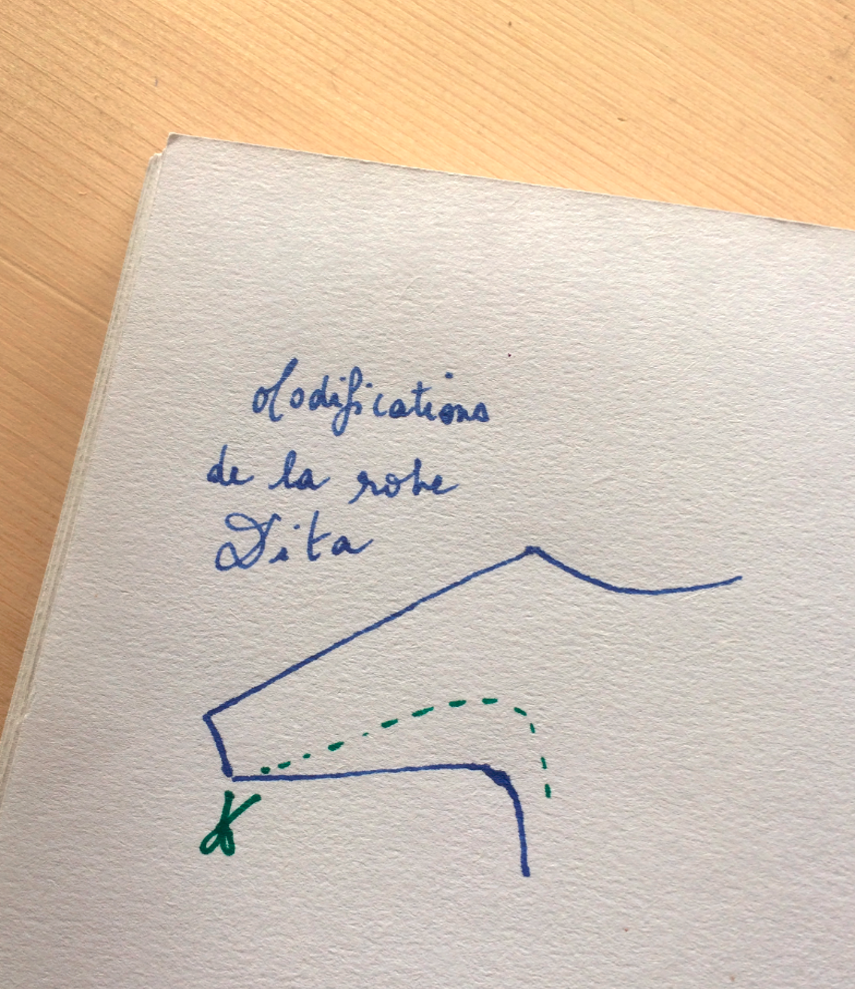 Modifications
de la robe
Dita